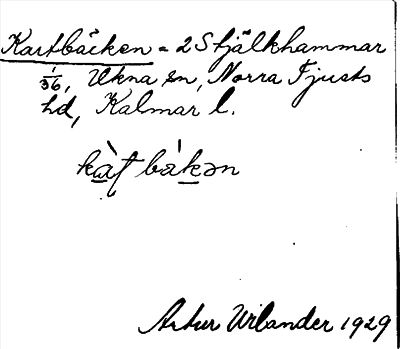 Kartbäcken = 2 Stjälkhammar
1/36, Ukna sn, Norra Tjusts
hd, Kalmar l.
kàt bákən
Artur Wilander 1929